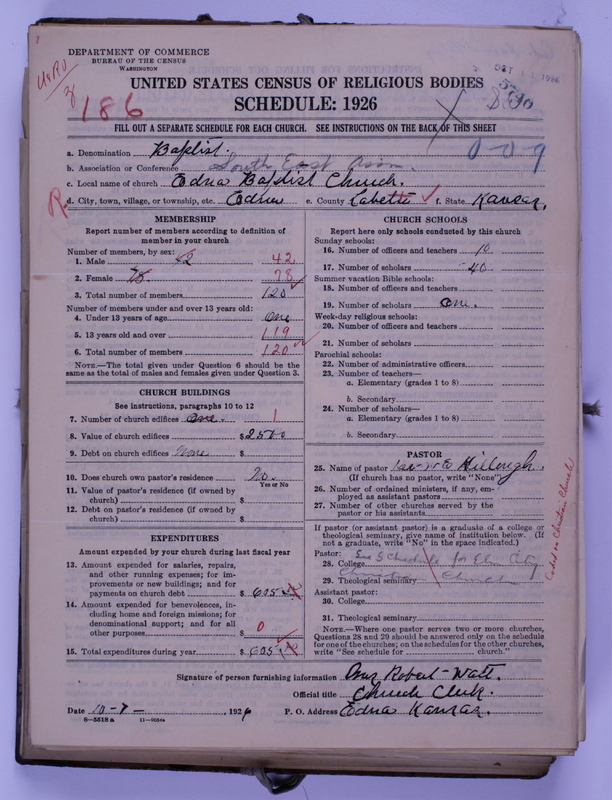 DEPARTMENT OF COMMERCE
BUREAU OF THE CENSUS
WASHINGTON
186
UNITED STATES CENSUS OF RELIGIOUS BODIES
SCHEDULE: 1926
FILL OUT A SEPARATE SCHEDULE FOR EACH CHURCH. SEE INSTRUCTIONS ON THE BACK OF THIS SHEET
a. Denomination Baptist.
0-0-9
b. Association or Conference South East Assn.
c. Local name of church Edna Baptist Church.
R
d. City, town, village, or township, etc. Edna e. County Labette f. State Kansas.
MEMBERSHIP
Report number of members according to definition of
member in your church
Number of members, by sex:
1. Male 42
2. Female 78
3. Total number of members 120
Number of members under and over 13 years old:
4. Under 13 years of age one
5. 13 years old and over 119
6. Total number of members 120
NOTE.—The total given under Question 6 should be
same as the total of males and females given under Question 3.
CHURCH BUILDINGS
See instructions, paragraphs 10 to 12
7. Number of church edifices one. 1
8. Value of church edifices $2500
9. Debt on church edifices None $
10. Does church own pastor's residence? No.
Yes or No
11. Value of pastor's residence (if owned by
church) $
12. Debt on pastor's residence (if owned by
church) $
EXPENDITURES
Amount expended by your church during last fiscal year
13. Amount expended for salaries, repairs,
and other running expenses; for im-
provements or new buildings; and for
payments on church debt $ 605
14. Amount expended for benevolences, in-
cluding home and foreign missions; for
denominational support; and for all
other purposes $ 0
15. Total expenditures during year $ 605
CHURCH SCHOOLS
Report here only schools conducted by this church
Sunday schools:
16. Number of officers and teachers 10
17. Number of scholars 40
Summer vacation Bible schools:
18. Number of officers and teachers
19. Number of scholars one.
Week-day religious schools:
20. Number of officers and teachers
21. Number of scholars
Parochial schools:
22. Number of administrative officers
23. Number of teachers—
a. Elementary (grades 1 to 8)
b. Secondary
24. Number of scholars—
a. Elementary (grades 1 to 8)
b. Secondary
PASTOR
25. Name of pastor W E Killough.
(If church has no pastor, write "None")
26. Number of ordained ministers, if any, em-
ployed as assistant pastors
27. Number of other churches served by the
pastor or his assistants
If pastor (or assistant pastor) is a graduate of a college or
theological seminary, give name of institution below. (If
not a graduate, write "No" in the space indicated.)
Pastor:
28. College See Schedule for Elm City
29. Theological seminary Christian Church
Assistant pastor:
30. College
31. Theological seminary
NOTE.—Where one pastor serves two or more churches,
Questions 28 and 29 should be answered only on the schedule
for one of the churches; on the schedules for the other churches,
write "See schedule for church."
Coded on Christian Church
Signature of person furnishing information Robert Watt.
Official title Church Clerk.
Date 10-7-, 1926 P. O. Address Edna Kansas.
8-5518a 11-9034a